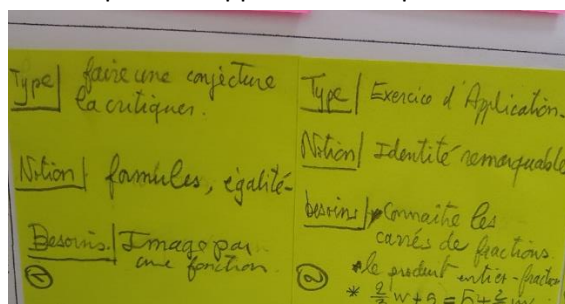 Type| faire une conjecture
la critiquer.
Notion| formules, égalité
Besoins.| Image par
une fonction.
1
Type| Exercice d'Application.
Notion| Identité remarquable
besoins| Connaître les
carrés de fractions.
* le produit entier-fraction
2